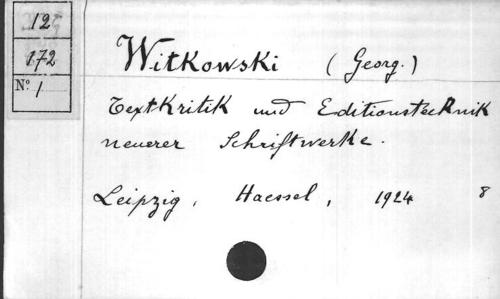 12
172
Nº 1
Witkowski (Georg.)
Textkritik und Editionstecknik
neuerer Schriftwerke.
Leipzig, Haessel, 1924 8